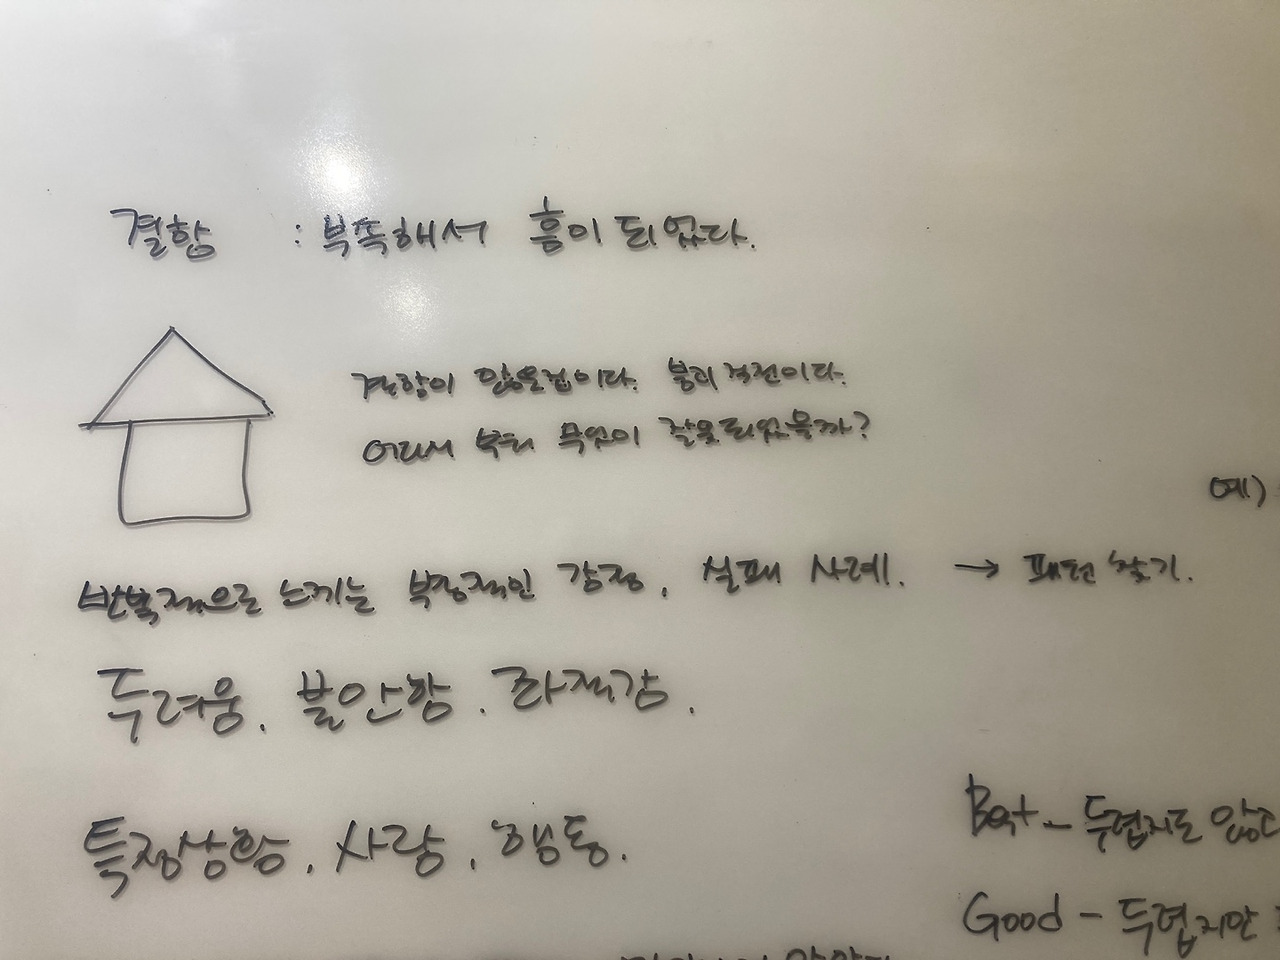 결함 : 부족해서 흠이 되었다.
결함이 있을집이다. 붕괴 직전이다.
어디서 부터 무엇이 잘못되었을까?
예)
반복적으로 느끼는 부정적인 감정, 실패 사례. → 패턴 찾기.
두려움, 불안함, 좌절감.
특정상황, 사람, 행동.
Best - 두렵지도 않고
Good - 두렵지만